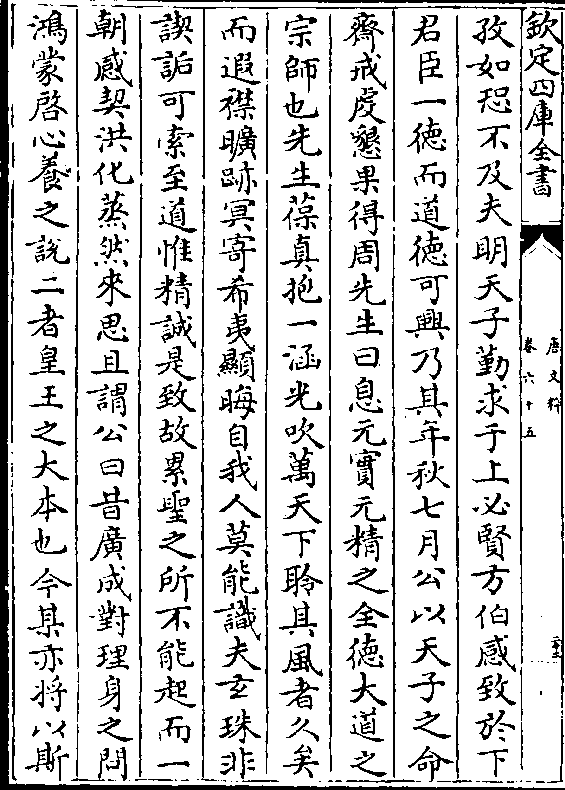 欽定四庫全書
唐文粹
卷六十五
孜如恐不及夫明天子勤求于上必賢方伯感致於下
君臣一德而道德可興乃其年秋七月公以天子之命
齋戒虔懇果得周先生曰息元實元精之全德大道之
宗師也先生葆真抱一涵光吹萬天下聆其風者久矣
而遐襟曠跡冥寄希夷顯晦自我人莫能識夫玄珠非
譔詬可索至道惟精誠是致故累聖之所不能起而一
朝感契洪化蒸然來思且謂公曰昔廣成對理身之問
鴻蒙啓心養之說二者皇王之大本也今某亦將以斯